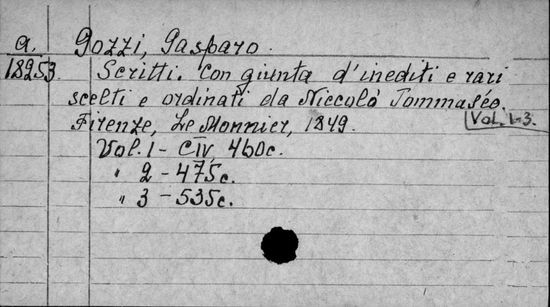 a. Gozzi, Gasparo.
18253. Scritti. Con giunta d'inediti e rari
scelti e ordinati da Niccolò Tommaséo.
Firenze, Le Monnier, 1849.
Vol. 1-3.
Vol. 1 - CIV, 460c.
" 2 - 475c.
" 3 - 535c.